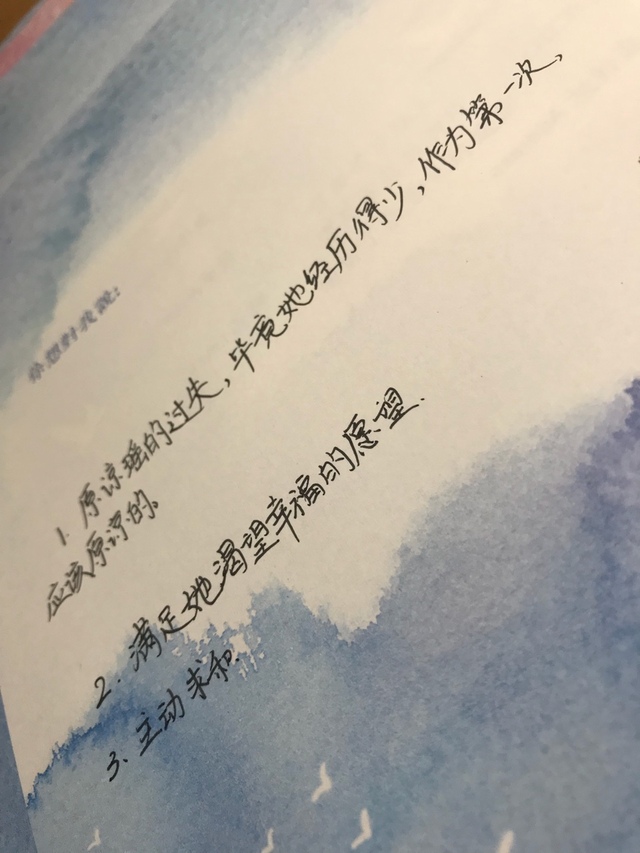 你想對我說：
1. 原谅瑶的过失，毕竟她经历得少，作为第一次，
应该原谅的。
2. 满足她渴望幸福的愿望.
3. 主动求和.